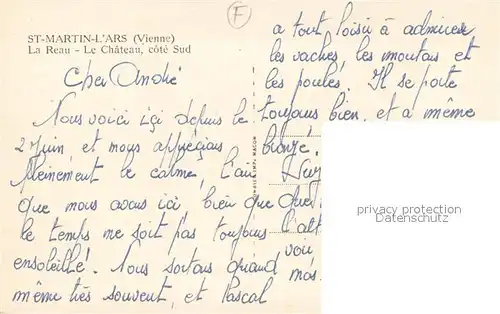 ST-MARTIN-L'ARS (Vienne)
La Reau - Le Château, côté Sud
F
Cher André
Nous voici içi depuis le
2 Juin et nous apprécions
pleinement le calme, l'air
que nous avons ici bien que
le temps ne soit pas toujours
ensoleillé. Nous sortons quand
même très souvent, et Pascal
a tout loisir à admirer
les vaches, les moutons et
les poules. Il se porte
toujours bien, et a même
bronzé.
l'alt
voi
nos
privacy protection
Datenschutz